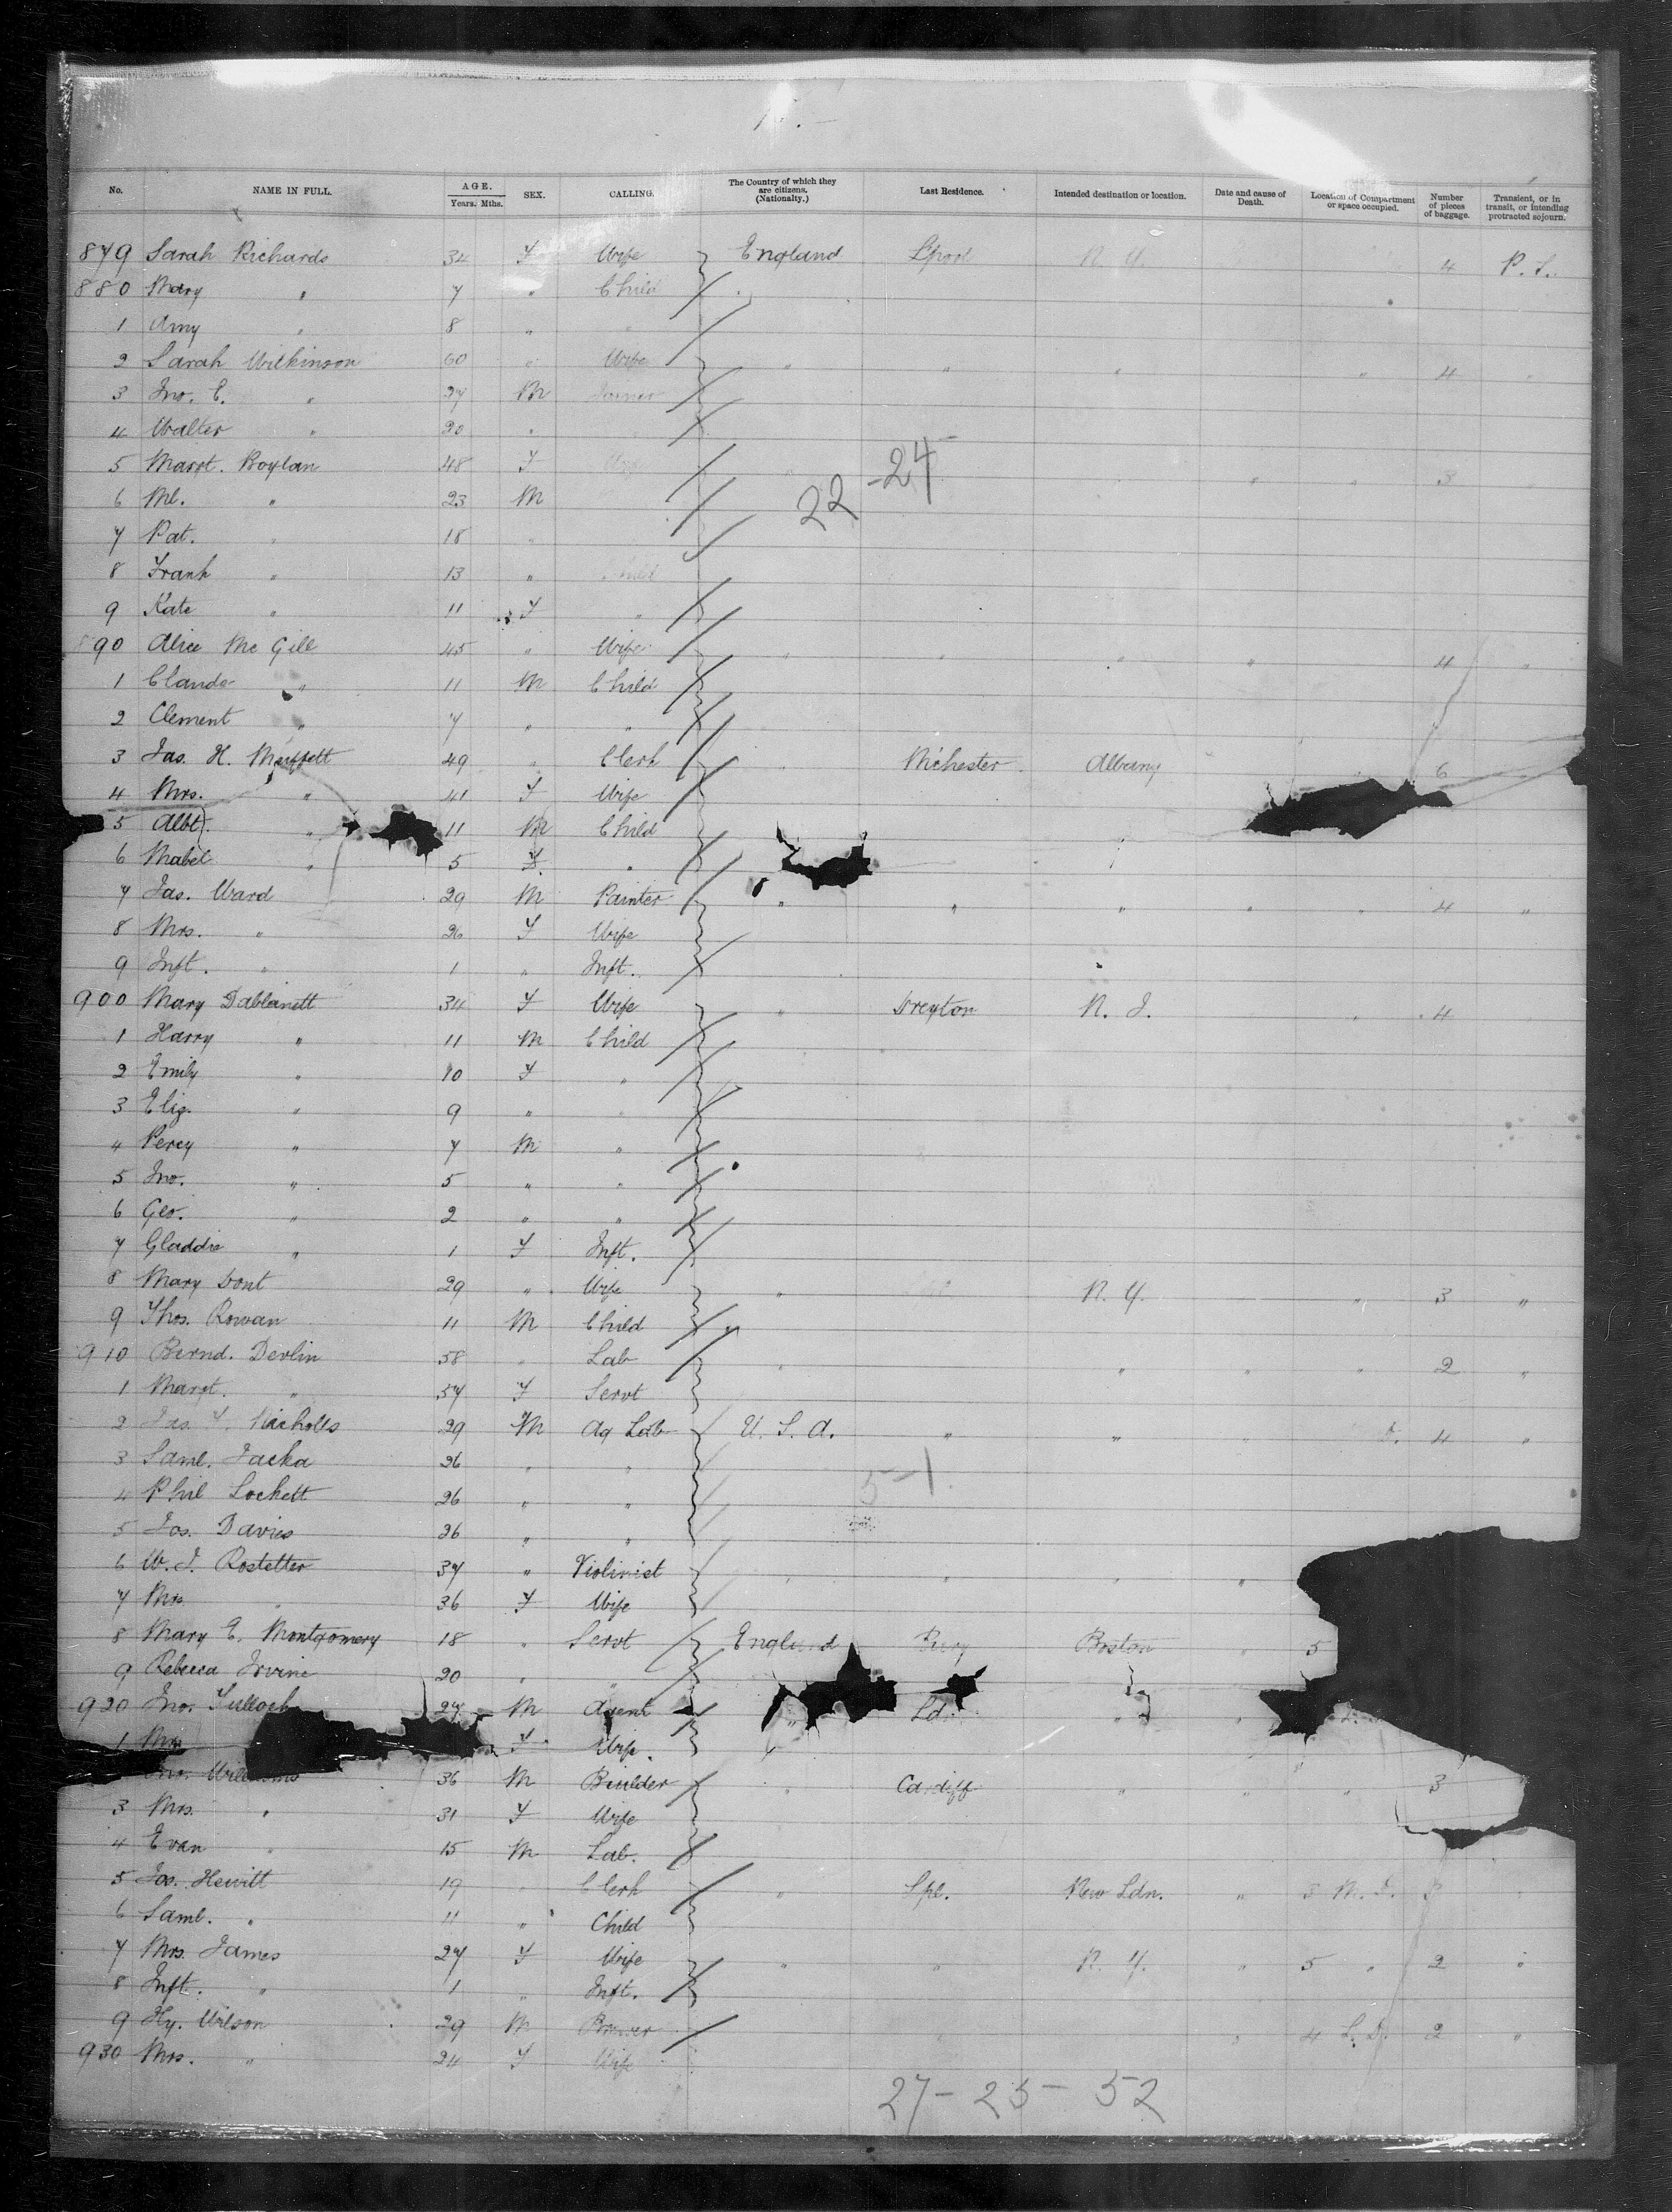 No. NAME IN FULL. AGE. Years. Mths. SEX. CALLING. The Country of which they are citizens. (Nationalty.) Last Residence. Intended destination or location. Date and cause of Death. Location of Compartment or space occupied. Number of pieces of baggage. Transient, or in transit, or intending protracted sojourn.
879 Sarah Richards 34 F Wife England Lpool N. Y. 4 P. S.
880 Mary " 7 " Child
1 Amy " 8 " "
2 Sarah Wilkinson 60 " Wife " " " " 4 "
3 Jno. E. " 27 M Joiner
4 Walter " 20 "
5 Margt. Boylan 48 F " " 3
22-24
6 Ml. " 23 M
7 Pat. " 18 "
8 Frank " 13 "
9 Kate " 11 F "
890 Alice Mc Gill 45 " Wife " " " " 4 "
1 Claude " 11 M Child
2 Clement " 7 " "
3 Jas. H. 49 " Clerk " M'chester Albany 6
4 Mrs. " 41 F Wife
5 Albt. " 11 M Child
6 Mabel " 5 F. "
7 Jas. Ward 29 M Painter " " " " " 4 "
8 Mrs. " 26 F Wife
9 Inft. " 1 " Inft.
900 Mary 34 F Wife " N. J. " 4
1 Harry " 11 M Child
2 Emily " 10 F "
3 Eliz. " 9 " "
4 Percy " 7 M "
5 Jno. " 5 " "
6 Geo. " 2 " "
7 Gladdie " 1 F Inft.
8 Mary 29 " Wife " N. Y. " 3 "
9 Thos. Rowan 11 M Child
910 Bernd. Devlin 58 " Lab " " " " 2 "
1 Margt. " 57 F Servt
2 Jas. Nicholls 29 M Ag Lab U. S. A. " " " 4 "
3 Saml. Jacka 26 " "
5-1
4 Phil Lockett 26 " "
5 Jos. Davies 26 " "
6 W. J. Rostetter 37 " Violinist " " " "
7 Mrs. " 36 F Wife
8 Mary E. Montgomery 18 " Servt England Bury Boston " 5
9 Rebecca Irvine 20 " "
920 Jno. Tulloch 27 M Agent " Ldn " "
1 Mrs F Wife.
Jno. Williams 36 M Builder " Cardiff " " " 3
3 Mrs. " 31 F Wife
4 Evan " 15 M Lab.
5 Jos. Hewitt 19 " Clerk " Lpl. New Ldn. " 3 3
6 Saml. " 11 " Child
7 Mrs. James 27 F Wife " " N. Y. " 5 " 2 "
8 Inft. " 1 " Inft.
9 Hy. Wilson 29 M " " 4 2 "
930 Mrs. " 24 F Wife
27-25-52